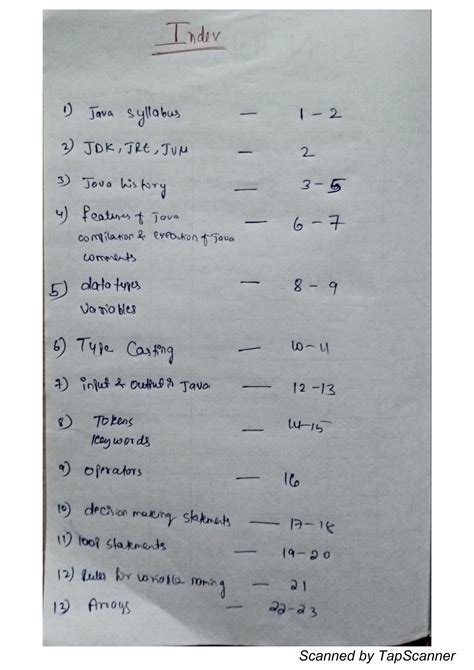 Index
1) Java syllabus — 1 - 2
2) JDK, JRE, JVM — 2
3) Java history — 3 - 5
4) features of Java — 6 - 7
compilation & execution of Java
comments
5) data types — 8 - 9
variables
6) Type Casting — 10 - 11
7) input & output in Java — 12 - 13
8) Tokens — 14 - 15
keywords
9) operators — 16
10) decision making statements — 17 - 18
11) loop statements — 19 - 20
12) Rules for variable naming — 21
13) Arrays — 22 - 23
Scanned by TapScanner